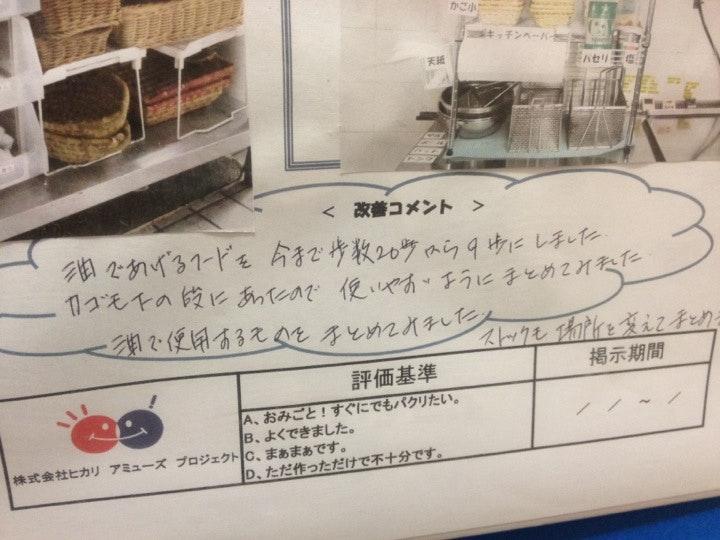 かご小
キッチンペーパー
天紙
パセリ
塩
＜ 改善コメント ＞
油であげるフードを 今まで歩数20歩から9歩にしました。
カゴも下の段にあったので 使いやすいようにまとめてみました。
油で使用するものを まとめてみました。
ストックも 場所を変えてまとめ
評価基準
掲示期間
A、おみごと！すぐにでもパクリたい。
B、よくできました。
C、まぁまぁです。
D、ただ作っただけで不十分です。
/ / ～ /
株式会社ヒカリ アミューズ プロジェクト